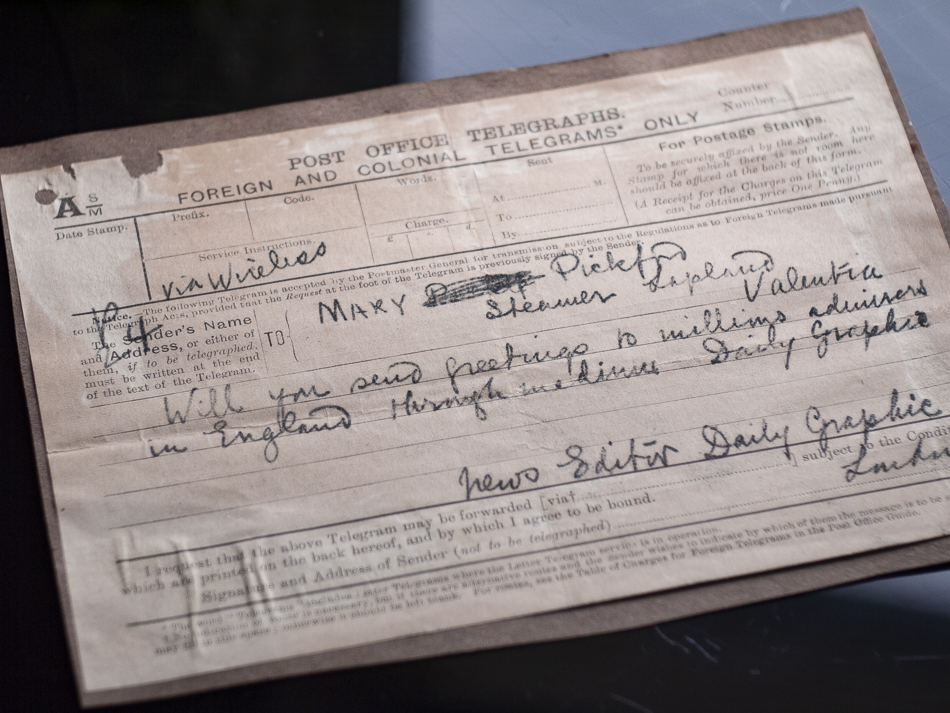 Counter
Number
POST OFFICE TELEGRAPHS.
FOREIGN AND COLONIAL TELEGRAMS* ONLY
A S
M
Date Stamp.
Prefix.
Code.
Words.
Sent
At M.
To
By
Charge.
£
For Postage Stamps.
To be securely affixed by the Sender. Any
Stamp for which there is not room here
should be affixed at the back of this form.
(A Receipt for the Charges on this Telegram
can be obtained, price One Penny.)
Service Instructions.
via Wireless
Notice. The following Telegram is accepted by the Postmaster General for transmission subject to the Regulations as to Foreign Telegrams made pursuant
to the Telegraph Acts, provided that the Request at the foot of the Telegram is previously signed by the Sender.
The Sender's Name
and Address, or either of
them, if to be telegraphed,
must be written at the end
of the text of the Telegram.
TO
MARY Pickford
Steamer Lapland Valentia
Will you send greetings to millions admirers
in England through medium Daily Graphic
News Editor Daily Graphic
subject to the
I request that the above Telegram may be forwarded [via†
which are printed on the back hereof, and by which I agree to be bound.
Signature and Address of Sender (not to be telegraphed)
For routes, see the Table of Charges for Foreign Telegrams in the Post Office Guide.